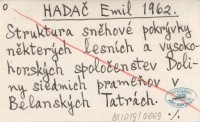 o HADAČ Emil 1962.
Struktura sněhové pokrývky
některých lesních a vysoko-
horských společenstev Doli-
ny siedmich prameňov v
Belanských Tatrách.
·/.